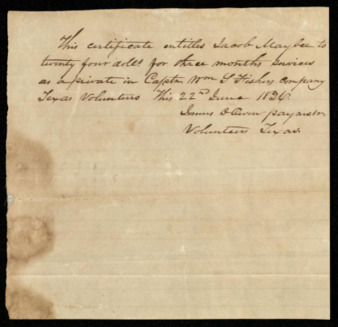 This certificate entitles Jacob Maybee to
twenty four dolls for three months services
as a private in Captn Wm S Fishers Company
Texas Volunteers This 22nd June 1836
D Owen paymstr
Volunteers Texas